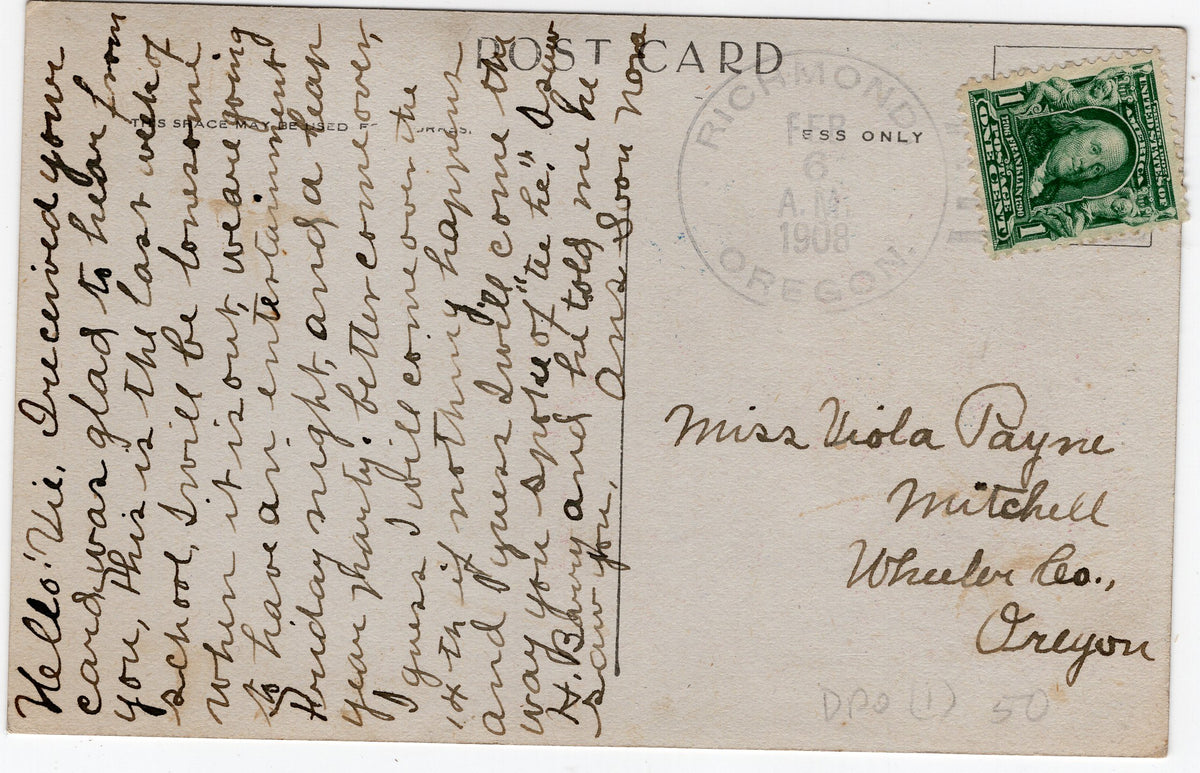 POST CARD
THIS SPACE MAY BE USED
ESS ONLY
RICHMOND
FEB
6
A.M.
1908
OREGON.
1
1
Hello! Vie, I received your
card, was glad to hear from
you, this is the last week of
school, I will be lonesome
when it is out, we are going
to have an entertainment
Friday night, and a leap
year party, better come over,
I guess I will come over the
14th if nothing happens
and I guess I will come the
way you spoke of "te he." I saw
H. Barry and he told me he
saw you,
Ans. Soon Nora
Miss Viola Payne
Mitchell
Wheeler Co.,
Oregon
DPO (1) 50